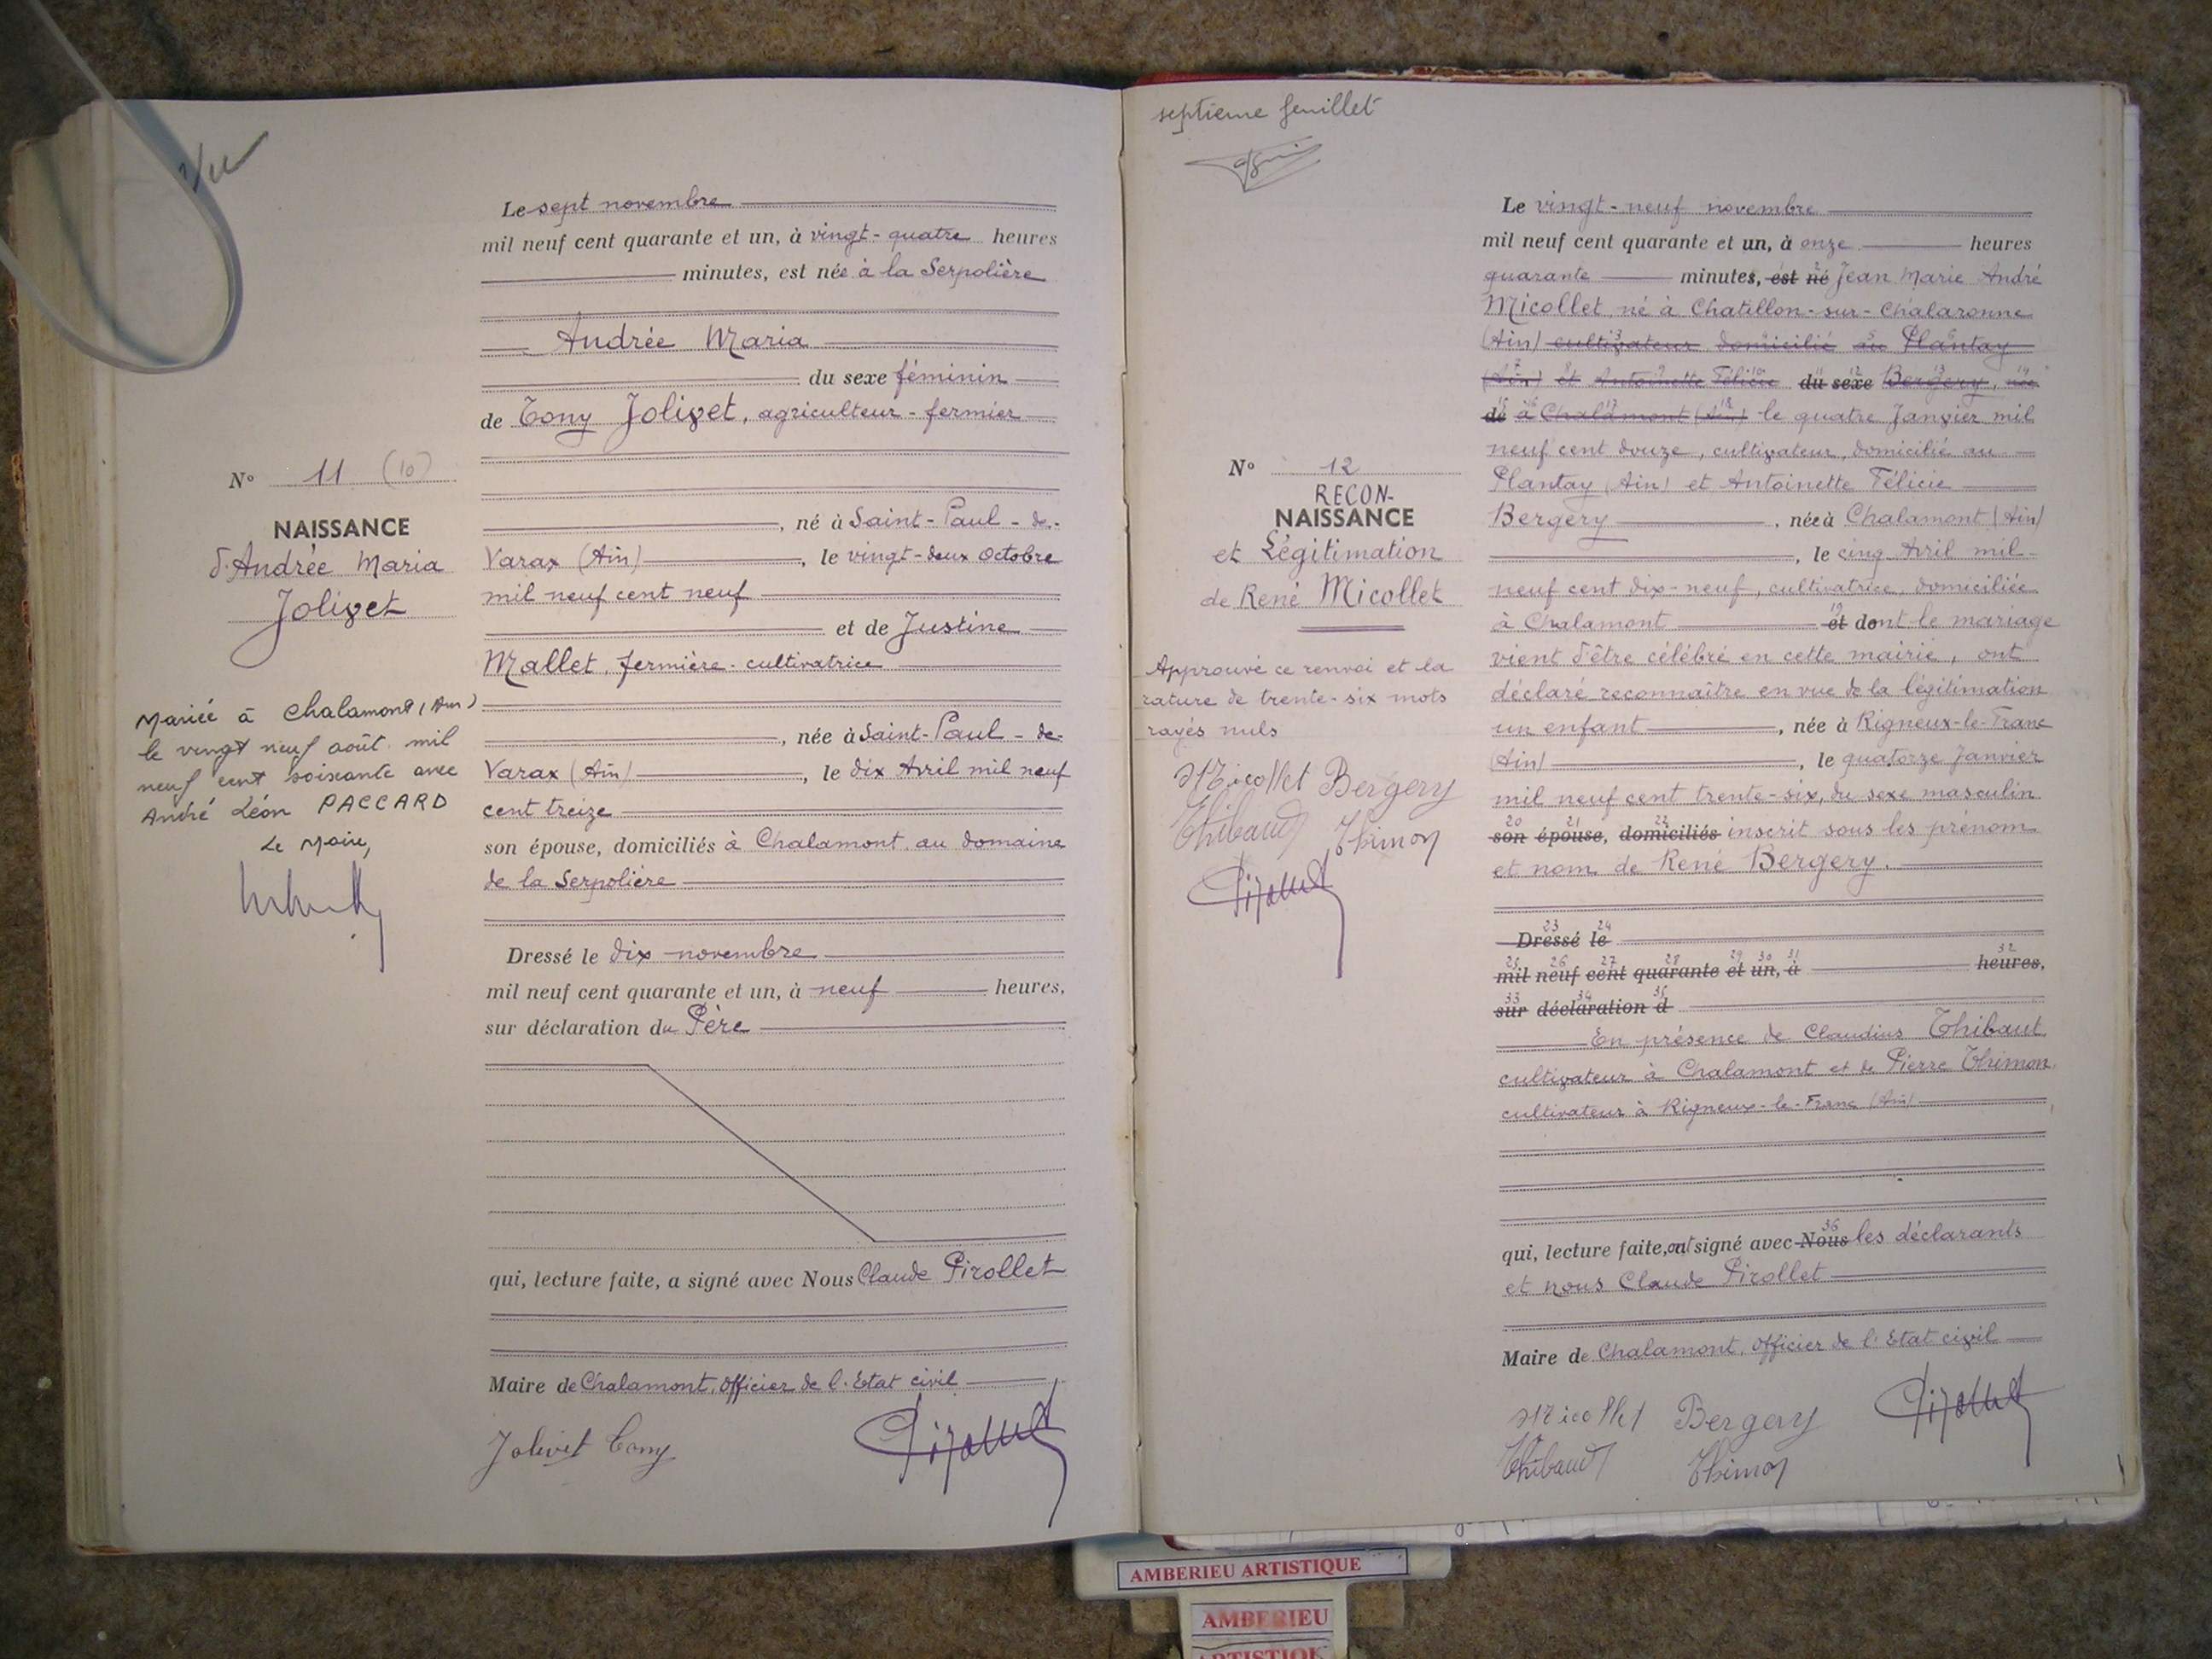 Vu
Le sept novembre
mil neuf cent quarante et un, à vingt-quatre heures
minutes, est née à la Serpolière
Andrée Maria
du sexe féminin
de Tony Jolivet, agriculteur-fermier
, né à Saint-Paul-de-
Varax (Ain), le vingt-deux Octobre
mil neuf cent neuf
et de Justine
Mallet, fermière-cultivatrice
, née à Saint-Paul-de-
Varax (Ain), le dix Avril mil neuf
cent treize
son épouse, domiciliés à Chalamont, au domaine
de la Serpolière
Dressé le dix novembre
mil neuf cent quarante et un, à neuf heures,
sur déclaration du Père
qui, lecture faite, a signé avec Nous Claude Pirollet
Maire de Chalamont, Officier de l'Etat civil
Jolivet Tony
Pirollet
N° 11 (10)
NAISSANCE
d'Andrée Maria
Jolivet
Mariée à Chalamont (Ain)
le vingt neuf août mil
neuf cent soixante avec
André Léon PACCARD
Le Maire,
septième feuillet
N° 12
RECON-
NAISSANCE
et Légitimation
de René Micollet
Approuvé ce renvoi et la
rature de trente-six mots
rayés nuls
Micollet Bergery
Thibaud Thimon
Pirollet
Le vingt-neuf novembre
mil neuf cent quarante et un, à onze heures
quarante minutes, est né Jean Marie André
Micollet, né à Chatillon-sur-Chalaronne
(Ain) cultivateur domicilié au Plantay
(Ain) et Antoinette Félicie du sexe Bergery, née
de à Chalamont (Ain) le quatre Janvier mil
neuf cent douze, cultivateur, domicilié au
Plantay (Ain) et Antoinette Félicie
Bergery, née à Chalamont (Ain)
, le cinq Avril mil
neuf cent dix-neuf, cultivatrice, domiciliée
à Chalamont et dont le mariage
vient d'être célébré en cette mairie, ont
déclaré reconnaître en vue de la légitimation
un enfant, née à Rigneux-le-Franc
(Ain), le quatorze Janvier
mil neuf cent trente-six, du sexe masculin
20 21 22
son épouse, domiciliés inscrit sous les prénom
et nom de René Bergery.
23 24
Dressé le
25 26 27 28 29 30 31 32
mil neuf cent quarante et un, à heures,
33 34 35
sur déclaration d
En présence de Claudius Thibaut
cultivateur à Chalamont et de Pierre Thimon,
cultivateur à Rigneux-le-Franc (Ain)
36
qui, lecture faite, ont signé avec Nous les déclarants
et nous Claude Pirollet
Maire de Chalamont, Officier de l'Etat civil
Micollet Bergery Pirollet
Thibaud Thimon
AMBERIEU ARTISTIQUE
AMBERIEU
ARTISTIQUE